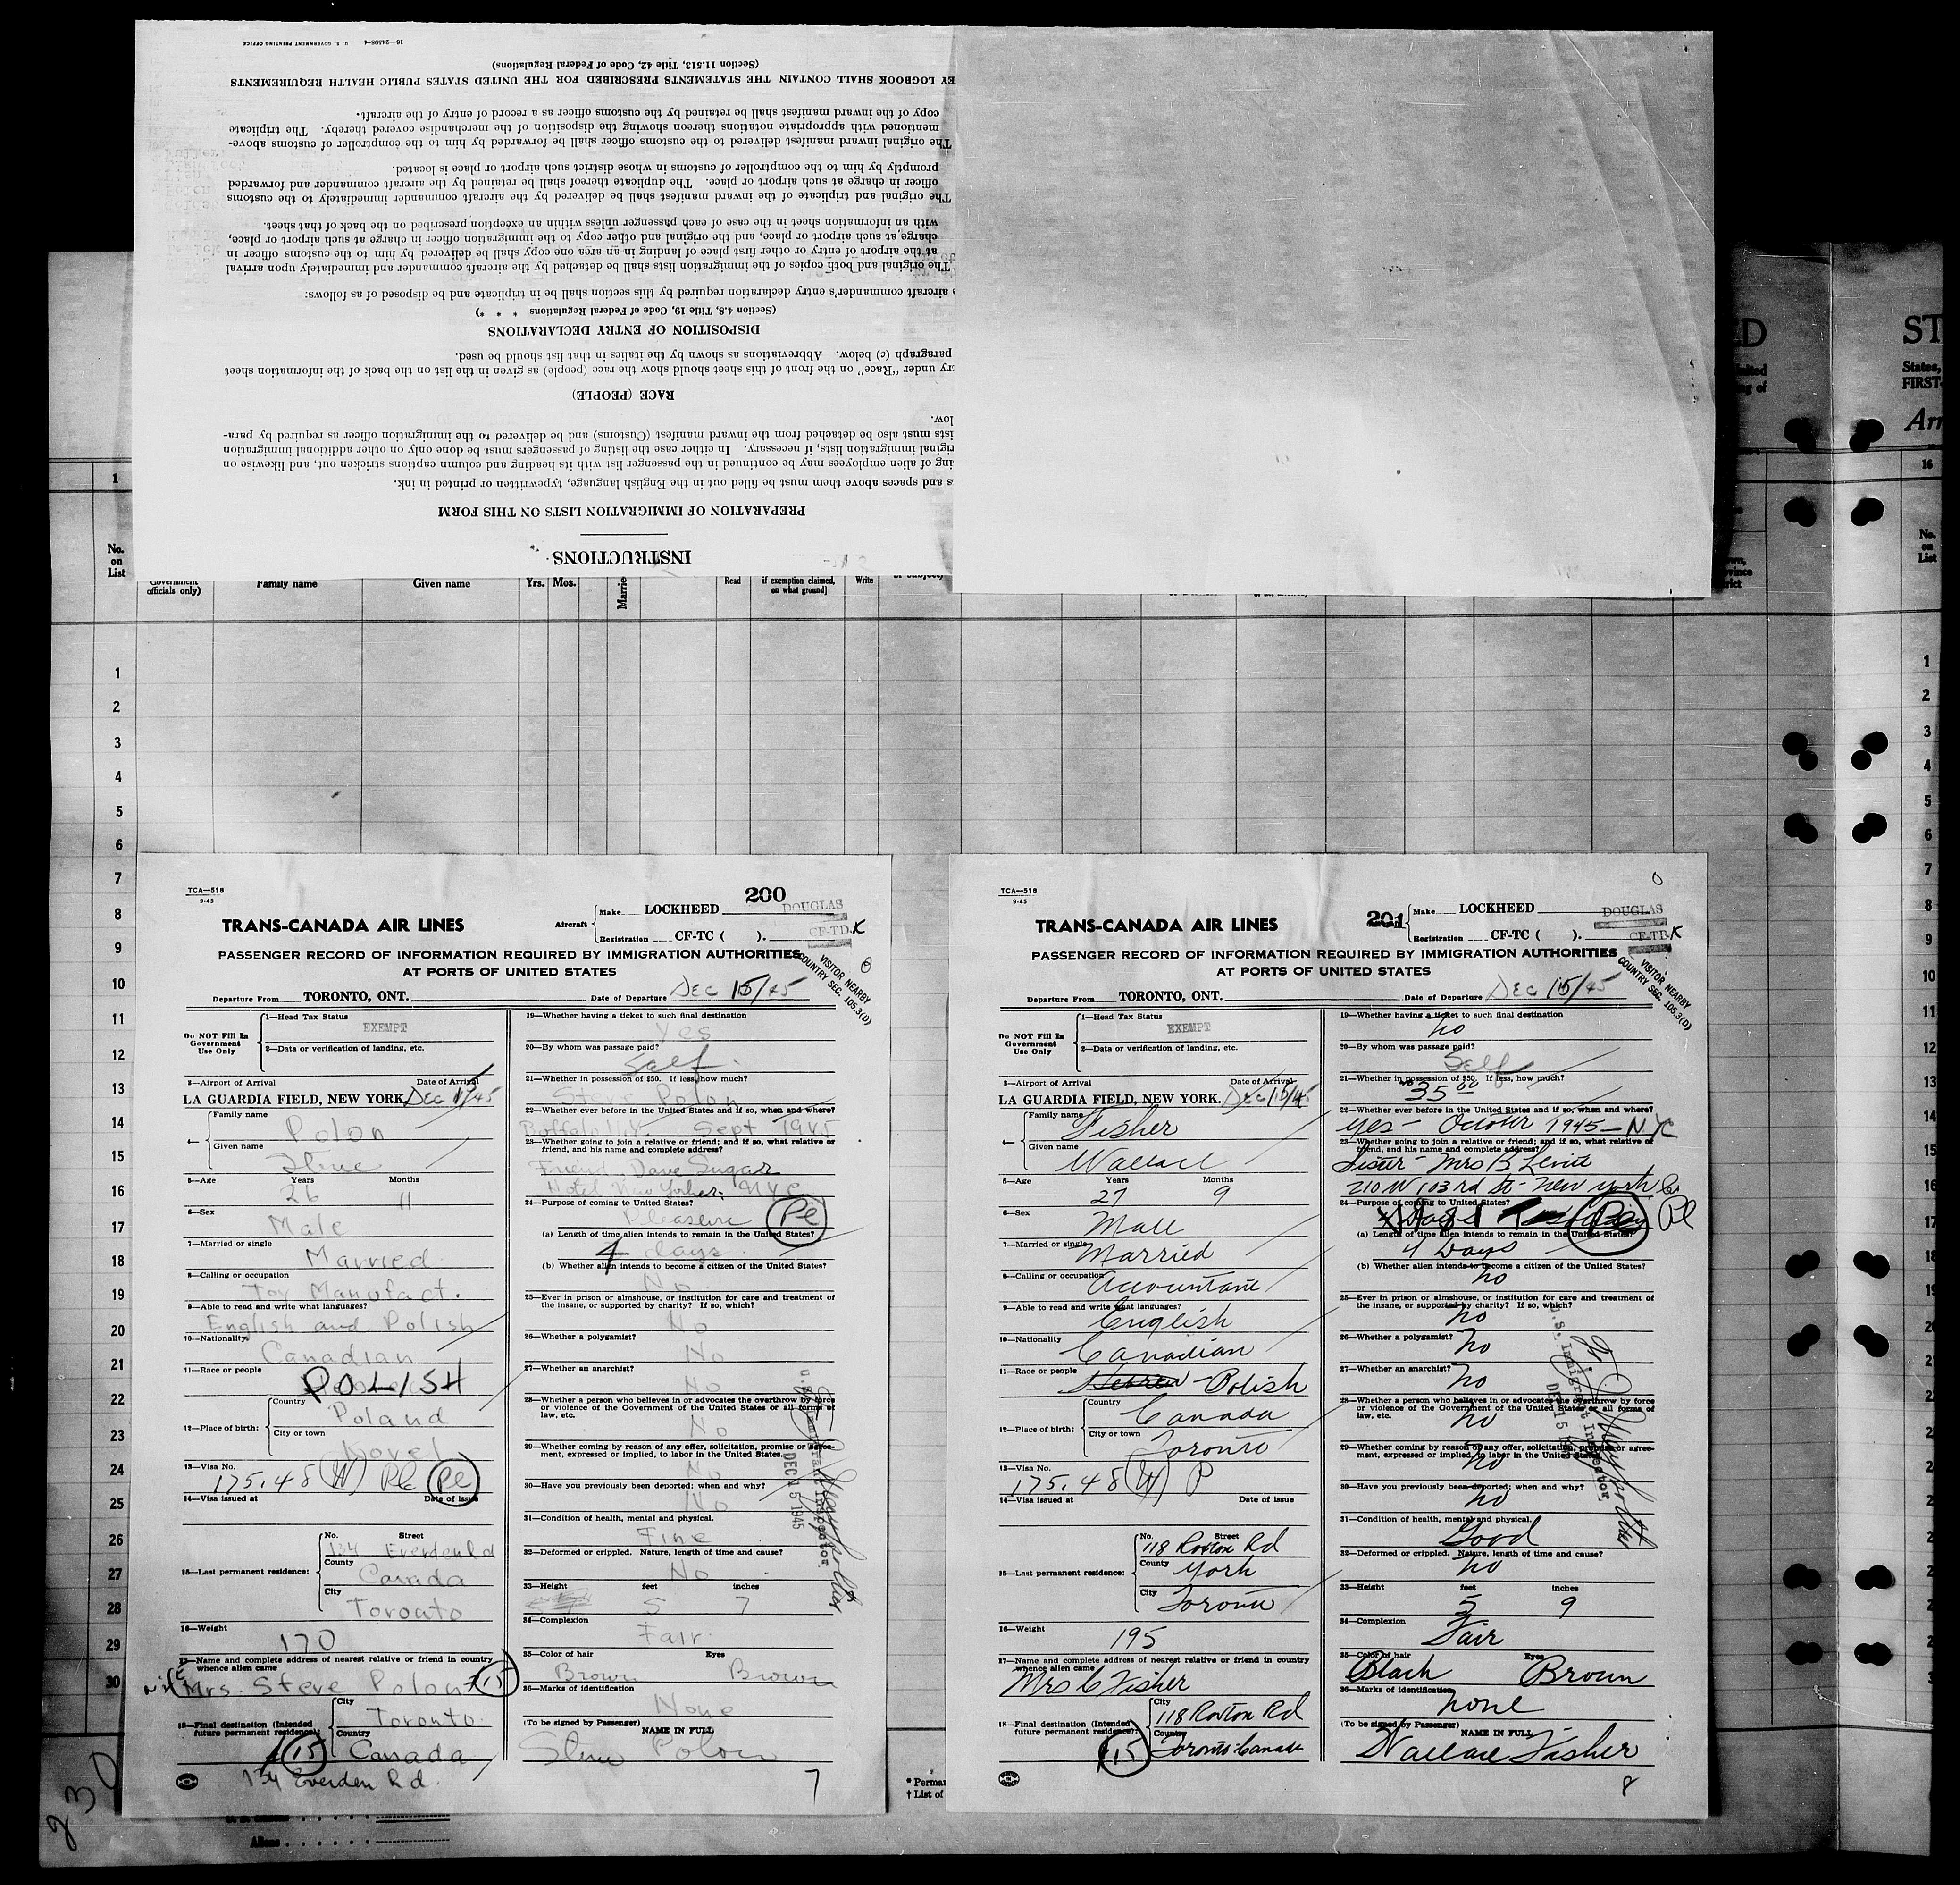 INSTRUCTIONS
PREPARATION OF IMMIGRATION LISTS ON THIS FORM
s and spaces above them must be filled out in the English language, typewritten or printed in ink.
ing of alien employees may be continued in the passenger list with its heading and column captions stricken out, and likewise on
riginal immigration lists, if necessary. In either case the listing of passengers must be done only on other additional immigration
ists must also be detached from the inward manifest (Customs) and be delivered to the immigration officer as required by para-
low.
RACE (PEOPLE)
ry under "Race" on the front of this sheet should show the race (people) as given in the list on the back of the information sheet
paragraph (c) below. Abbreviations as shown by the italics in that list should be used.
DISPOSITION OF ENTRY DECLARATIONS
(Section 4.8, Title 19, Code of Federal Regulations * * *)
e aircraft commander's entry declaration required by this section shall be in triplicate and be disposed of as follows:
The original and both copies of the immigration lists shall be detached by the aircraft commander and immediately upon arrival
at the airport of entry or other first place of landing in an area one copy shall be delivered by him to the customs officer in
charge at such airport or place, and the original and other copy to the immigration officer in charge at such airport or place,
with an information sheet in the case of each passenger unless within an exception prescribed on the back of that sheet.
The original and triplicate of the inward manifest shall be delivered by the aircraft commander immediately to the customs
officer in charge at such airport or place. The duplicate thereof shall be retained by the aircraft commander and forwarded
promptly by him to the comptroller of customs in whose district such airport or place is located.
The original inward manifest delivered to the customs officer shall be forwarded by him to the comptroller of customs above-
mentioned with appropriate notations thereon showing the disposition of the merchandise covered thereby. The triplicate
copy of the inward manifest shall be retained by the customs officer as a record of entry of the aircraft.
EY LOGBOOK SHALL CONTAIN THE STATEMENTS PRESCRIBED FOR THE UNITED STATES PUBLIC HEALTH REQUIREMENTS
(Section 11.513, Title 42, Code of Federal Regulations)
16—24598-4 U. S. GOVERNMENT PRINTING OFFICE
D
ST
States,
FIRST-
Arr
1
16
No. on List
officials only)
Family name
Given name
Yrs. Mos.
Read
if exemption claimed, on what ground]
Write
No. on List
1
2
3
4
5
6
7
8
9
10
11
12
13
14
15
16
17
18
19
20
21
22
23
24
25
26
27
28
29
30
TCA—518
9-45
200
TRANS-CANADA AIR LINES
Aircraft Make LOCKHEED DOUGLAS
Registration CF-TC ( ). CF-TD-K
PASSENGER RECORD OF INFORMATION REQUIRED BY IMMIGRATION AUTHORITIES
AT PORTS OF UNITED STATES
VISITOR NEARBY
COUNTRY SEC. 105.3(D)
Departure From TORONTO, ONT. Date of Departure Dec 15/45
Do NOT Fill In Government Use Only
1—Head Tax Status
EXEMPT
2—Data or verification of landing, etc.
3—Airport of Arrival Date of Arrival
LA GUARDIA FIELD, NEW YORK.
4— Family name
Polon
Given name
Steve
5—Age Years Months
26 11
6—Sex
Male
7—Married or single
Married
8—Calling or occupation
Toy Manufact.
9—Able to read and write what languages?
English and Polish
10—Nationality
Canadian
11—Race or people
POLISH
12—Place of birth: Country
Poland
City or town
13—Visa No.
175.48 (W) Pl (Pl)
14—Visa issued at Date of issue
15—Last permanent residence: No. Street
134 Everden Rd
County
Canada
City
Toronto
16—Weight
170
17—Name and complete address of nearest relative or friend in country whence alien came
wife Mrs. Steve Polon 15
18—Final destination (Intended future permanent residence): City
Toronto
Country
15 Canada
134 Everden Rd.
19—Whether having a ticket to such final destination
Yes
20—By whom was passage paid?
Self
21—Whether in possession of $50. If less, how much?
Steve Polon
22—Whether ever before in the United States and if so, when and where?
Buffalo N.Y. Sept 1945
23—Whether going to join a relative or friend; and if so, what relative or friend, and his name and complete address?
Friend Dave Sugar
Hotel New Yorker, NYC
24—Purpose of coming to United States?
Pleasure (Pl)
(a) Length of time alien intends to remain in the United States?
4 days
(b) Whether alien intends to become a citizen of the United States?
No
25—Ever in prison or almshouse, or institution for care and treatment of the insane, or supported by charity? If so, which?
No
26—Whether a polygamist?
No
27—Whether an anarchist?
No
28—Whether a person who believes in or advocates the overthrow by force or violence of the Government of the United States or all forms of law, etc.
No
29—Whether coming by reason of any offer, solicitation, promise or agreement, expressed or implied, to labor in the United States.
No
30—Have you previously been deported; when and why?
No
31—Condition of health, mental and physical.
Fine
32—Deformed or crippled. Nature, length of time and cause?
No
33—Height feet inches
5 7
34—Complexion
Fair
35—Color of hair Eyes
Brown Brown
36—Marks of identification
None
(To be signed by Passenger) NAME IN FULL
Steve Polon
7
U.S. Immigrant Inspector
DEC 15 1945
TCA—518
9-45
201
TRANS-CANADA AIR LINES
Make LOCKHEED DOUGLAS
Registration CF-TC ( ). CF-TD-K
PASSENGER RECORD OF INFORMATION REQUIRED BY IMMIGRATION AUTHORITIES
AT PORTS OF UNITED STATES
VISITOR NEARBY
COUNTRY SEC. 105.3(D)
Departure From TORONTO, ONT. Date of Departure Dec 15/45
Do NOT Fill In Government Use Only
1—Head Tax Status
EXEMPT
2—Data or verification of landing, etc.
3—Airport of Arrival Date of Arrival
LA GUARDIA FIELD, NEW YORK. Dec 15/45
4— Family name
Fisher
Given name
Wallace
5—Age Years Months
27 9
6—Sex
Male
7—Married or single
Married
8—Calling or occupation
Accountant
9—Able to read and write what languages?
English
10—Nationality
Canadian
11—Race or people
Hebrew - Polish
12—Place of birth: Country
Canada
City or town
Toronto
13—Visa No.
175.48 (W) P
14—Visa issued at Date of issue
15—Last permanent residence: No. Street
118 Roxton Rd
County
York
City
Toronto
16—Weight
195
17—Name and complete address of nearest relative or friend in country whence alien came
Mrs C Fisher
18—Final destination (Intended future permanent residence): City
118 Roxton Rd
Country
15 Toronto Canada
19—Whether having a ticket to such final destination
No
20—By whom was passage paid?
Self
21—Whether in possession of $50. If less, how much?
35 00
22—Whether ever before in the United States and if so, when and where?
Yes - October 1945 - NYC
23—Whether going to join a relative or friend; and if so, what relative or friend, and his name and complete address?
Sister - Mrs B Levitt
210 W 103rd St - New York
24—Purpose of coming to United States?
Pl
(a) Length of time alien intends to remain in the United States?
4 Days
(b) Whether alien intends to become a citizen of the United States?
No
25—Ever in prison or almshouse, or institution for care and treatment of the insane, or supported by charity? If so, which?
No
26—Whether a polygamist?
No
27—Whether an anarchist?
No
28—Whether a person who believes in or advocates the overthrow by force or violence of the Government of the United States or all forms of law, etc.
No
29—Whether coming by reason of any offer, solicitation, promise or agreement, expressed or implied, to labor in the United States.
No
30—Have you previously been deported; when and why?
No
31—Condition of health, mental and physical.
Good
32—Deformed or crippled. Nature, length of time and cause?
No
33—Height feet inches
5 9
34—Complexion
Fair
35—Color of hair Eyes
Black Brown
36—Marks of identification
None
(To be signed by Passenger) NAME IN FULL
Wallace Fisher
8
U.S. Immigrant Inspector
* Perma
† List of
Aliens
230